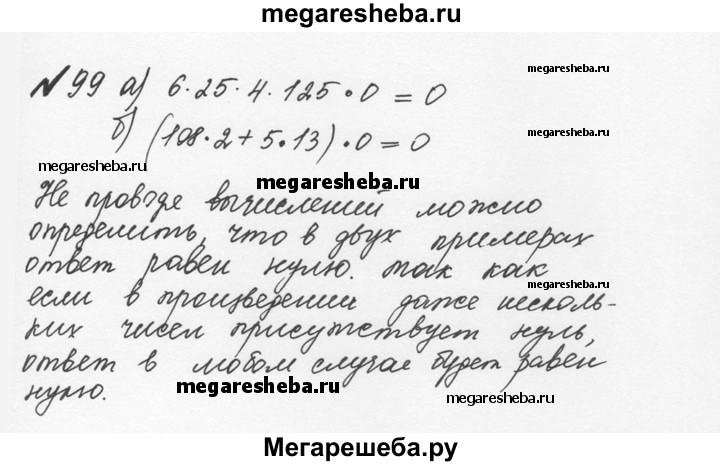 megaresheba.ru
№99 а) 6·25·4·125·0=0
megaresheba.ru
б) (108·2+5·13)·0=0
megaresheba.ru
megaresheba.ru
megaresheba.ru
Не проводе вычислений можно
определить, что в двух примерах
ответ равен нулю. так как
megaresheba.ru
если в произведении даже несколь-
ких чисел присутствует нуль,
ответ в любом случае будет равен
megaresheba.ru
нулю.
megaresheba.ru
Мегарешеба.ру